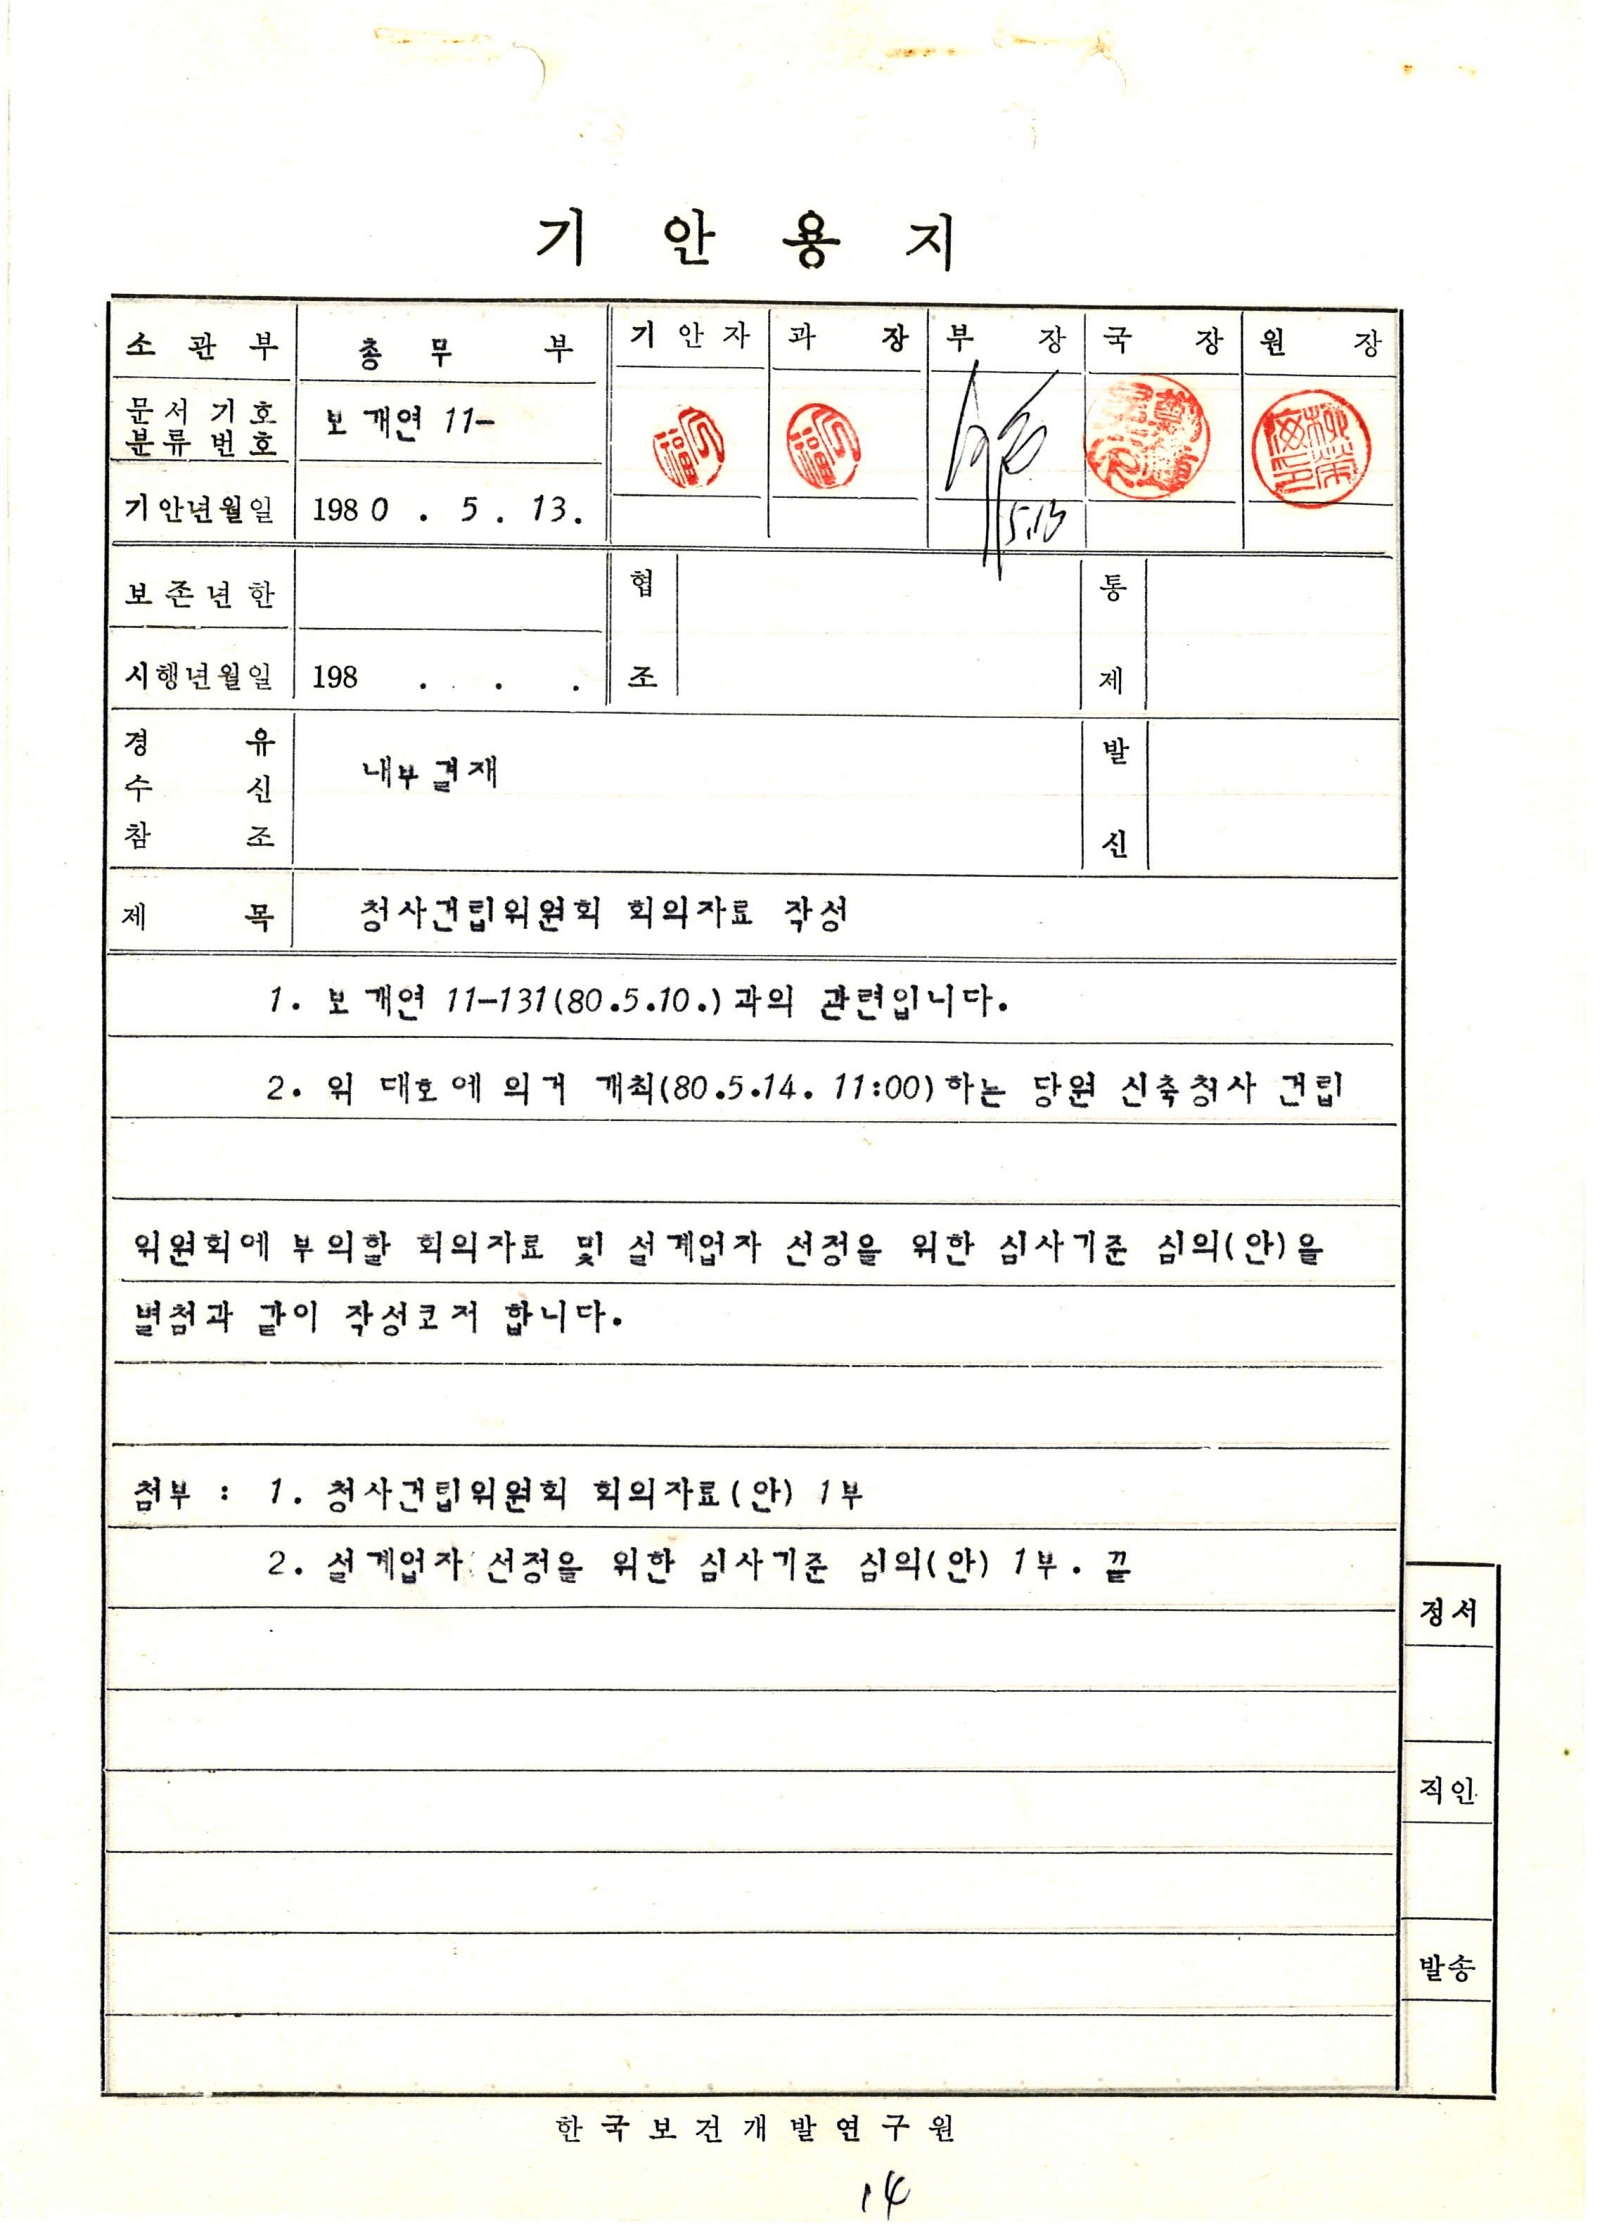 기 안 용 지
소 관 부 총 무 부 기 안 자 과 장 부 장 국 장 원 장
문 서 기 호
분 류 번 호 보개연 11-
기안년월일 1980 . 5 . 13.
5.13
보 존 년 한 협 통
시행년월일 198 . . . 조 제
경 유 발
내부결재
수 신
참 조 신
제 목 청사건립위원회 회의자료 작성
1. 보개연 11-131(80.5.10.)과의 관련입니다.
2. 위 대호에 의거 개최(80.5.14. 11:00)하는 당원 신축청사 건립
위원회에 부의할 회의자료 및 설계업자 선정을 위한 심사기준 심의(안)을
별첨과 같이 작성코저 합니다.
첨부 : 1. 청사건립위원회 회의자료(안) 1부
2. 설계업자 선정을 위한 심사기준 심의(안) 1부. 끝
정서
직인
발송
한국보건개발연구원
14